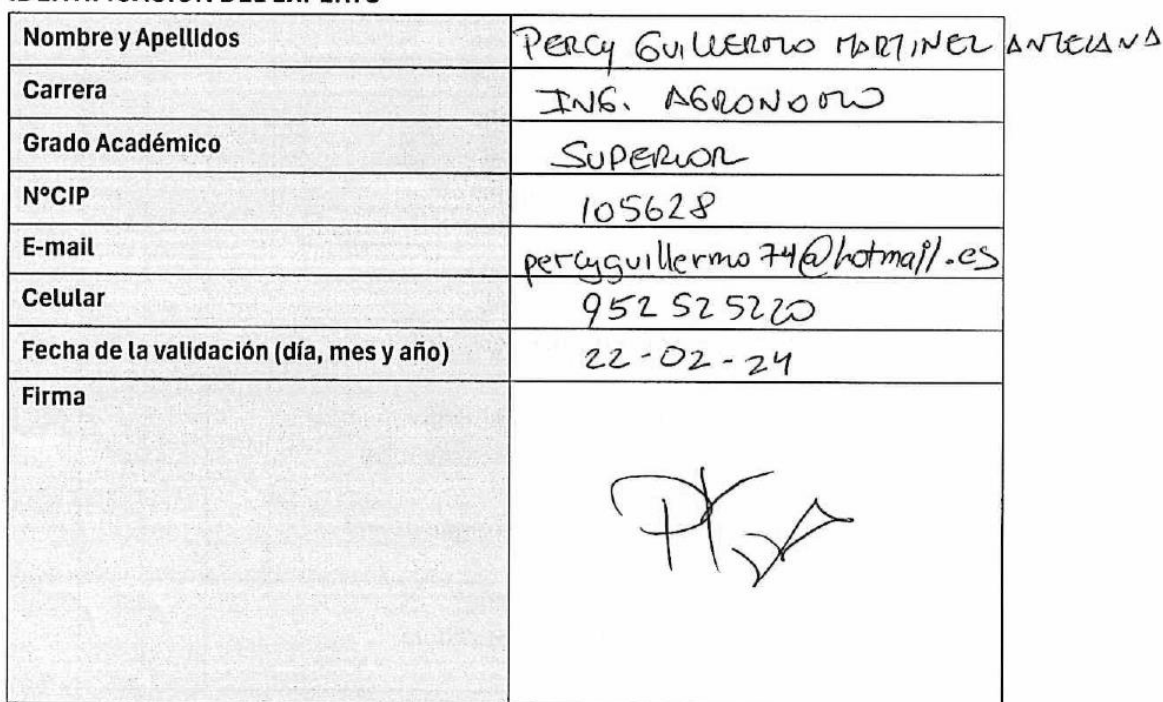 Nombre y Apellidos PERCY GUILLERMO MARTINEZ ANTEZANA
Carrera ING. AGRONOMO
Grado Académico SUPERIOR
N°CIP 105628
E-mail percyguillermo74@hotmail.es
Celular 952 525220
Fecha de la validación (día, mes y año) 22-02-24
Firma